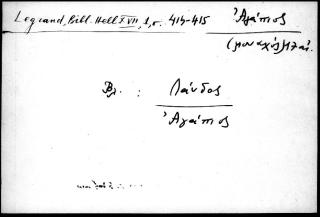 Legrand, Bibl. Hell XVII, 1, σ. 414-415 Ἀγάπιος
(μοναχός) 17 αἰ.
Βλ. : Λάνδος
Ἀγάπιος